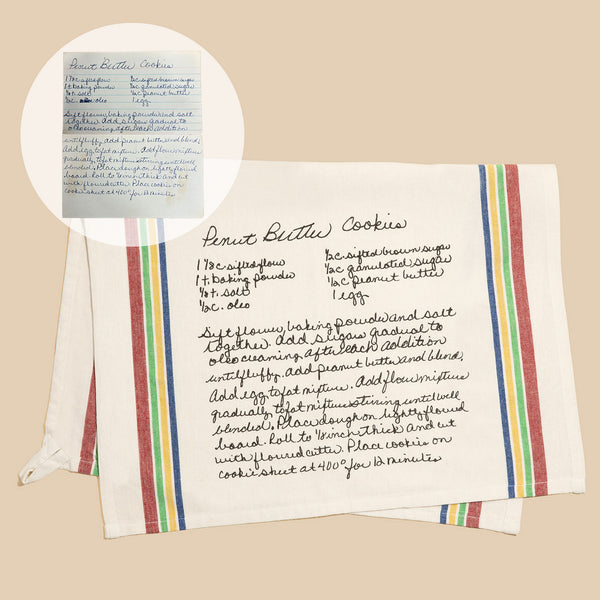 Penut Butter Cookies
1 1/8 c sifted flow
1 t. baking powder
1/8 t. salt
1/2 c. oleo
1/2 c. sifted brown sugar
1/2 c granulated sugar
1/2 c peanut butter
1 egg
Sift flower, baking powder and salt
together. Add sugars gradual to
oleo creaming after each addition
until fluffy. add peanut butter and blend.
Add egg to fat mixture. Add flow mixture
gradually to fat mixture stirring until well
blended. Place dough on lightly flowred
board. Roll to 1/8 inch thick and cut
with floured cutter. Place cookies on
cookie sheet at 400° for 12 minutes
Penut Butter Cookies
1 1/8 c sifted flow
1 t. baking powder
1/8 t. salt
1/2 c. oleo
1/2 c. sifted brown sugar
1/2 c granulated sugar
1/2 c peanut butter
1 egg
Sift flower, baking powder and salt
together. Add sugars gradual to
oleo creaming after each addition
until fluffy. add peanut butter and blend.
Add egg to fat mixture. Add flow mixture
gradually to fat mixture stirring until well
blended. Place dough on lightly flowred
board. Roll to 1/8 inch thick and cut
with floured cutter. Place cookies on
cookie sheet at 400° for 12 minutes